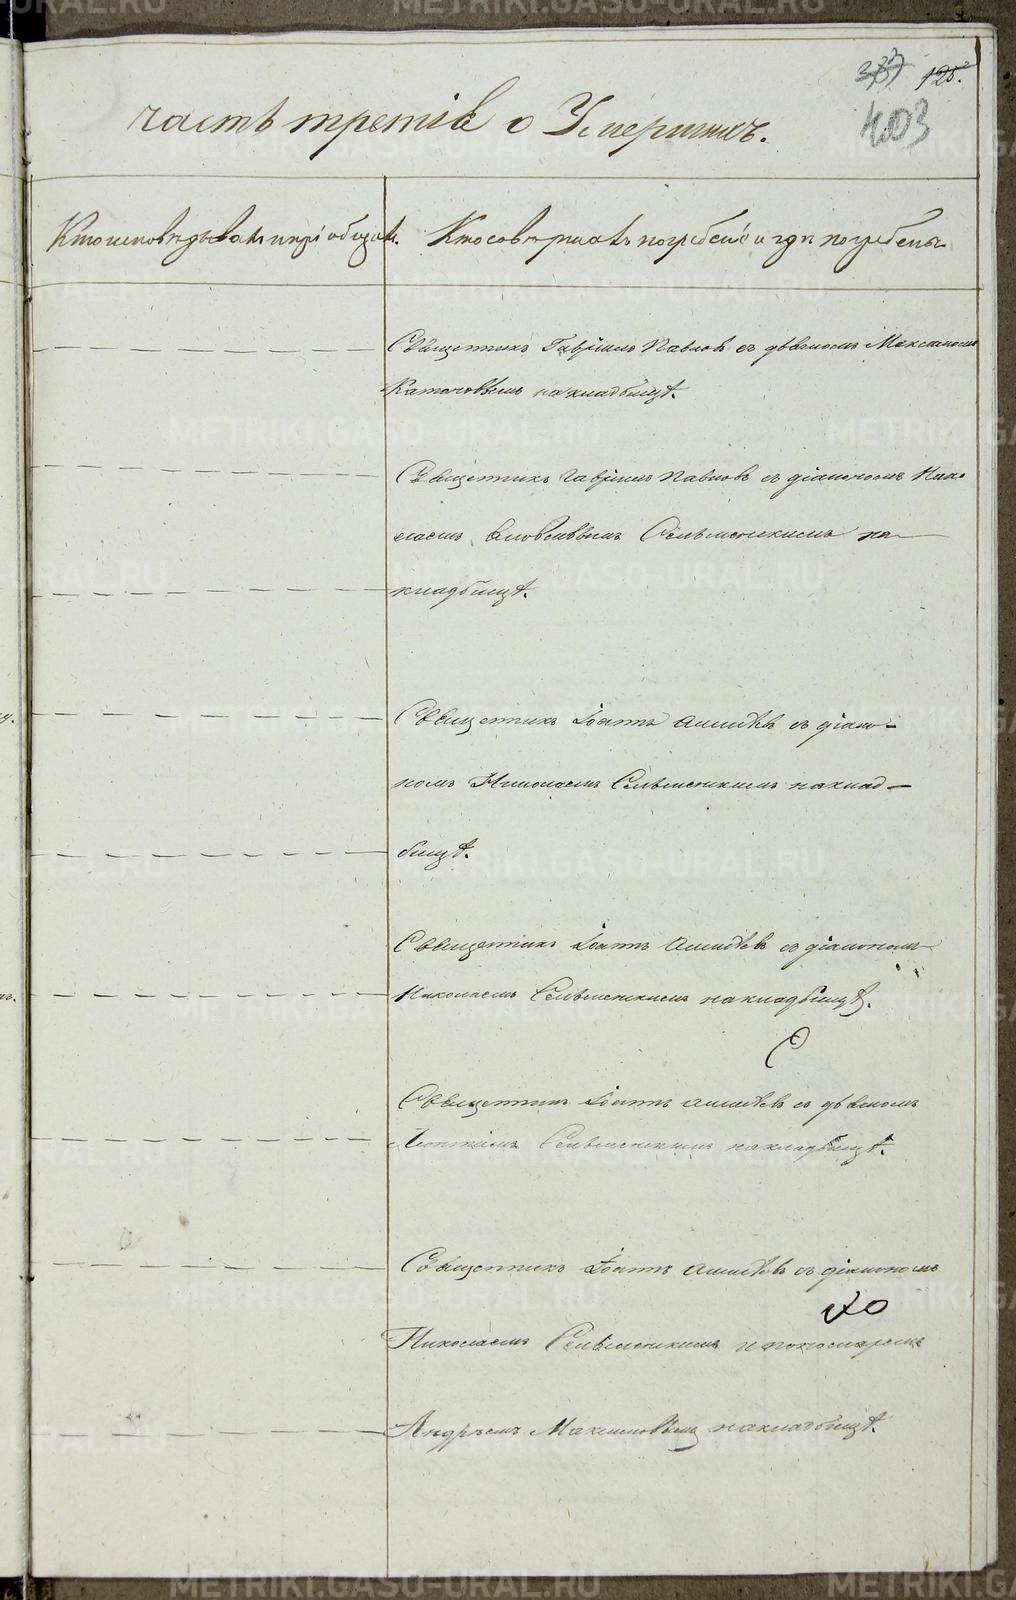 403
часть третія о Умершихъ.
Кто исповѣдывалъ и пріобщалъ.
Кто совершалъ погребеніе и гдѣ погребены
Священникъ Гавріилъ Павловъ съ дьячкомъ
на кладбищѣ.
Священникъ Гавріилъ Павловъ съ діакономъ Нико-
лаемъ Сельменскимъ на
кладбищѣ.
Священникъ Іоаннъ съ діако-
номъ Николаемъ Сельменскимъ на клад-
бищѣ.
Священникъ Іоаннъ съ діакономъ
Николаемъ Сельменскимъ на кладбищѣ.
Священникъ Іоаннъ съ дьячкомъ
Сельменскимъ на кладбищѣ.
Священникъ Іоаннъ съ діакономъ
Николаемъ Сельменскимъ и пономаремъ
Андреемъ Максимовымъ на кладбищѣ.
METRIKI.GASO-URAL.RU